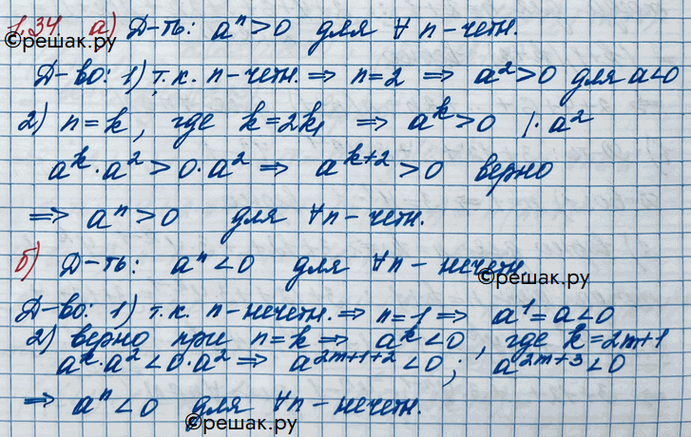 1.34. а) Д-ть: aⁿ>0 для ∀ n-четн.
©решак.ру
Д-во: 1) т.к. n-четн. ⇒ n=2 ⇒ a²>0 для a<0
2) n=k, где k=2k₁ ⇒ aᵏ>0 |·a²
aᵏ·a²>0·a² ⇒ aᵏ⁺²>0 верно
⇒ aⁿ>0 для ∀n-четн.
б) Д-ть: aⁿ<0 для ∀n-нечетн.
©решак.ру
Д-во: 1) т.к. n-нечетн. ⇒ n=1 ⇒ a¹=a<0
2) верно при n=k ⇒ aᵏ<0, где k=2m+1
aᵏ·a²<0·a² ⇒ a²ᵐ⁺¹⁺²<0; a²ᵐ⁺³<0
⇒ aⁿ<0 для ∀n-нечетн.
©решак.ру